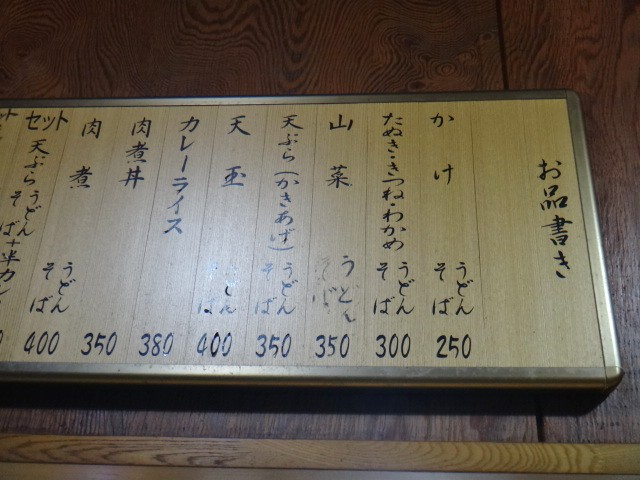 お品書き
かけ うどん そば 250
たぬき・きつね・わかめ うどん そば 300
山菜 うどん そば 350
天ぷら(かきあげ) うどん そば 350
天玉 うどん そば 400
カレーライス 380
肉煮丼 350
肉煮 うどん そば 400
セット 天ぷら うどん そば +半カレ